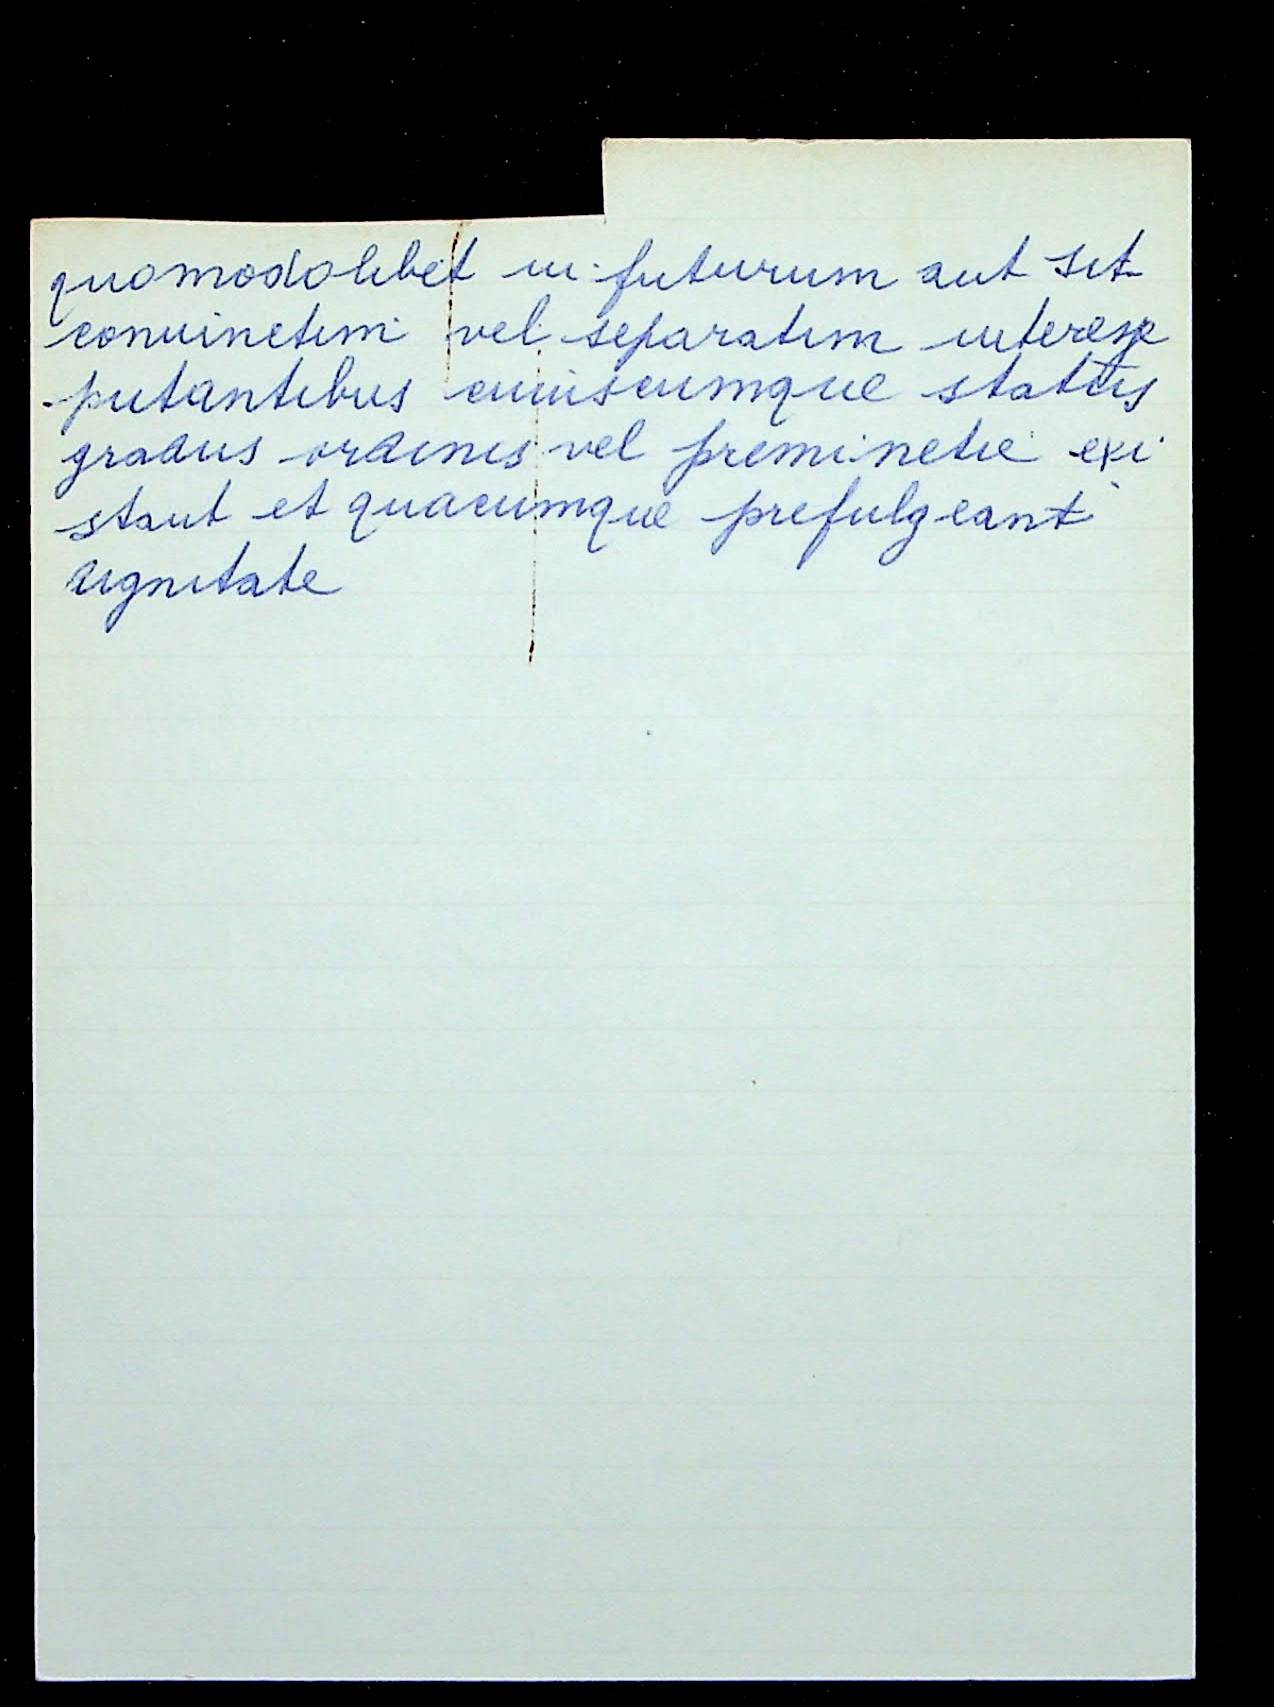 quomodolibet in futurum aut sit
conuinctim vel separatim interesse
putantibus cuiuscumque status
gradus ordinis vel preminetie exi
stant et quacumque prefulgeant
dignitate